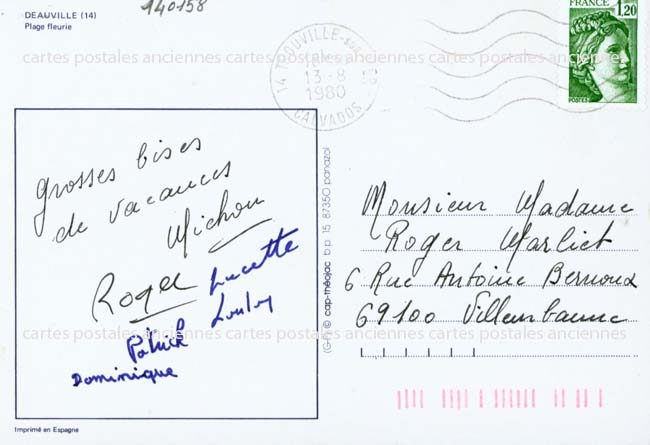 DEAUVILLE (14)
Plage fleurie
140158
FRANCE
1,20
POSTES
14 TROUVILLE-SUR
13-8
1980
CALVADOS
cartes postales anciennes cartes postales anciennes
grosses bises
de vacances
Michou
Lucette
Roger
Loulou
Patrick
Dominique
(G-F) © cap-théojac b.p. 15 87350 panazol
Monsieur Madame
Roger Marliet
6 Rue Antoine Bernoux
69100 Villeurbanne
cartes postales anciennes cartes postales anciennes
Imprimé en Espagne